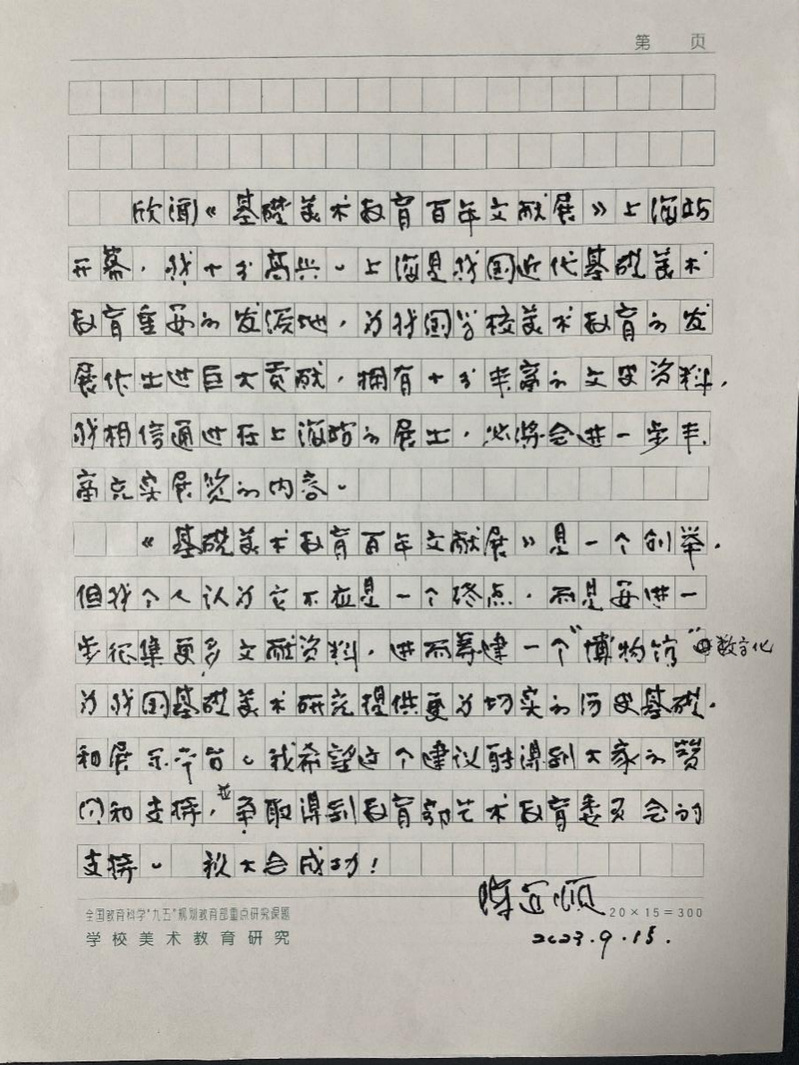 第 页
欣闻《基礎美术教育百年文献展》上海站
开幕，我十分高兴。上海是我国近代基礎美术
教育重要的发源地，为我国学校美术教育的发
展作出过巨大贡献，拥有十分丰富的文史资料，
我相信通过在上海站的展出，必将会进一步丰
富充实展览的内容。
《基礎美术教育百年文献展》是一个创举，
但我个人认为它不应是一个终点，而是要进一
步征集更多文献资料，进而筹建一个"博物馆"数字化
为我国基礎美术研究提供更为切实的历史基礎，
和展示平台。我希望这个建议能得到大家的赞
同和支持，并争取得到教育部艺术教育委员会的
支持。 祝大会成功！
全国教育科学"九五"规划教育部重点研究课题
20×15=300
学校美术教育研究
2023.9.15.